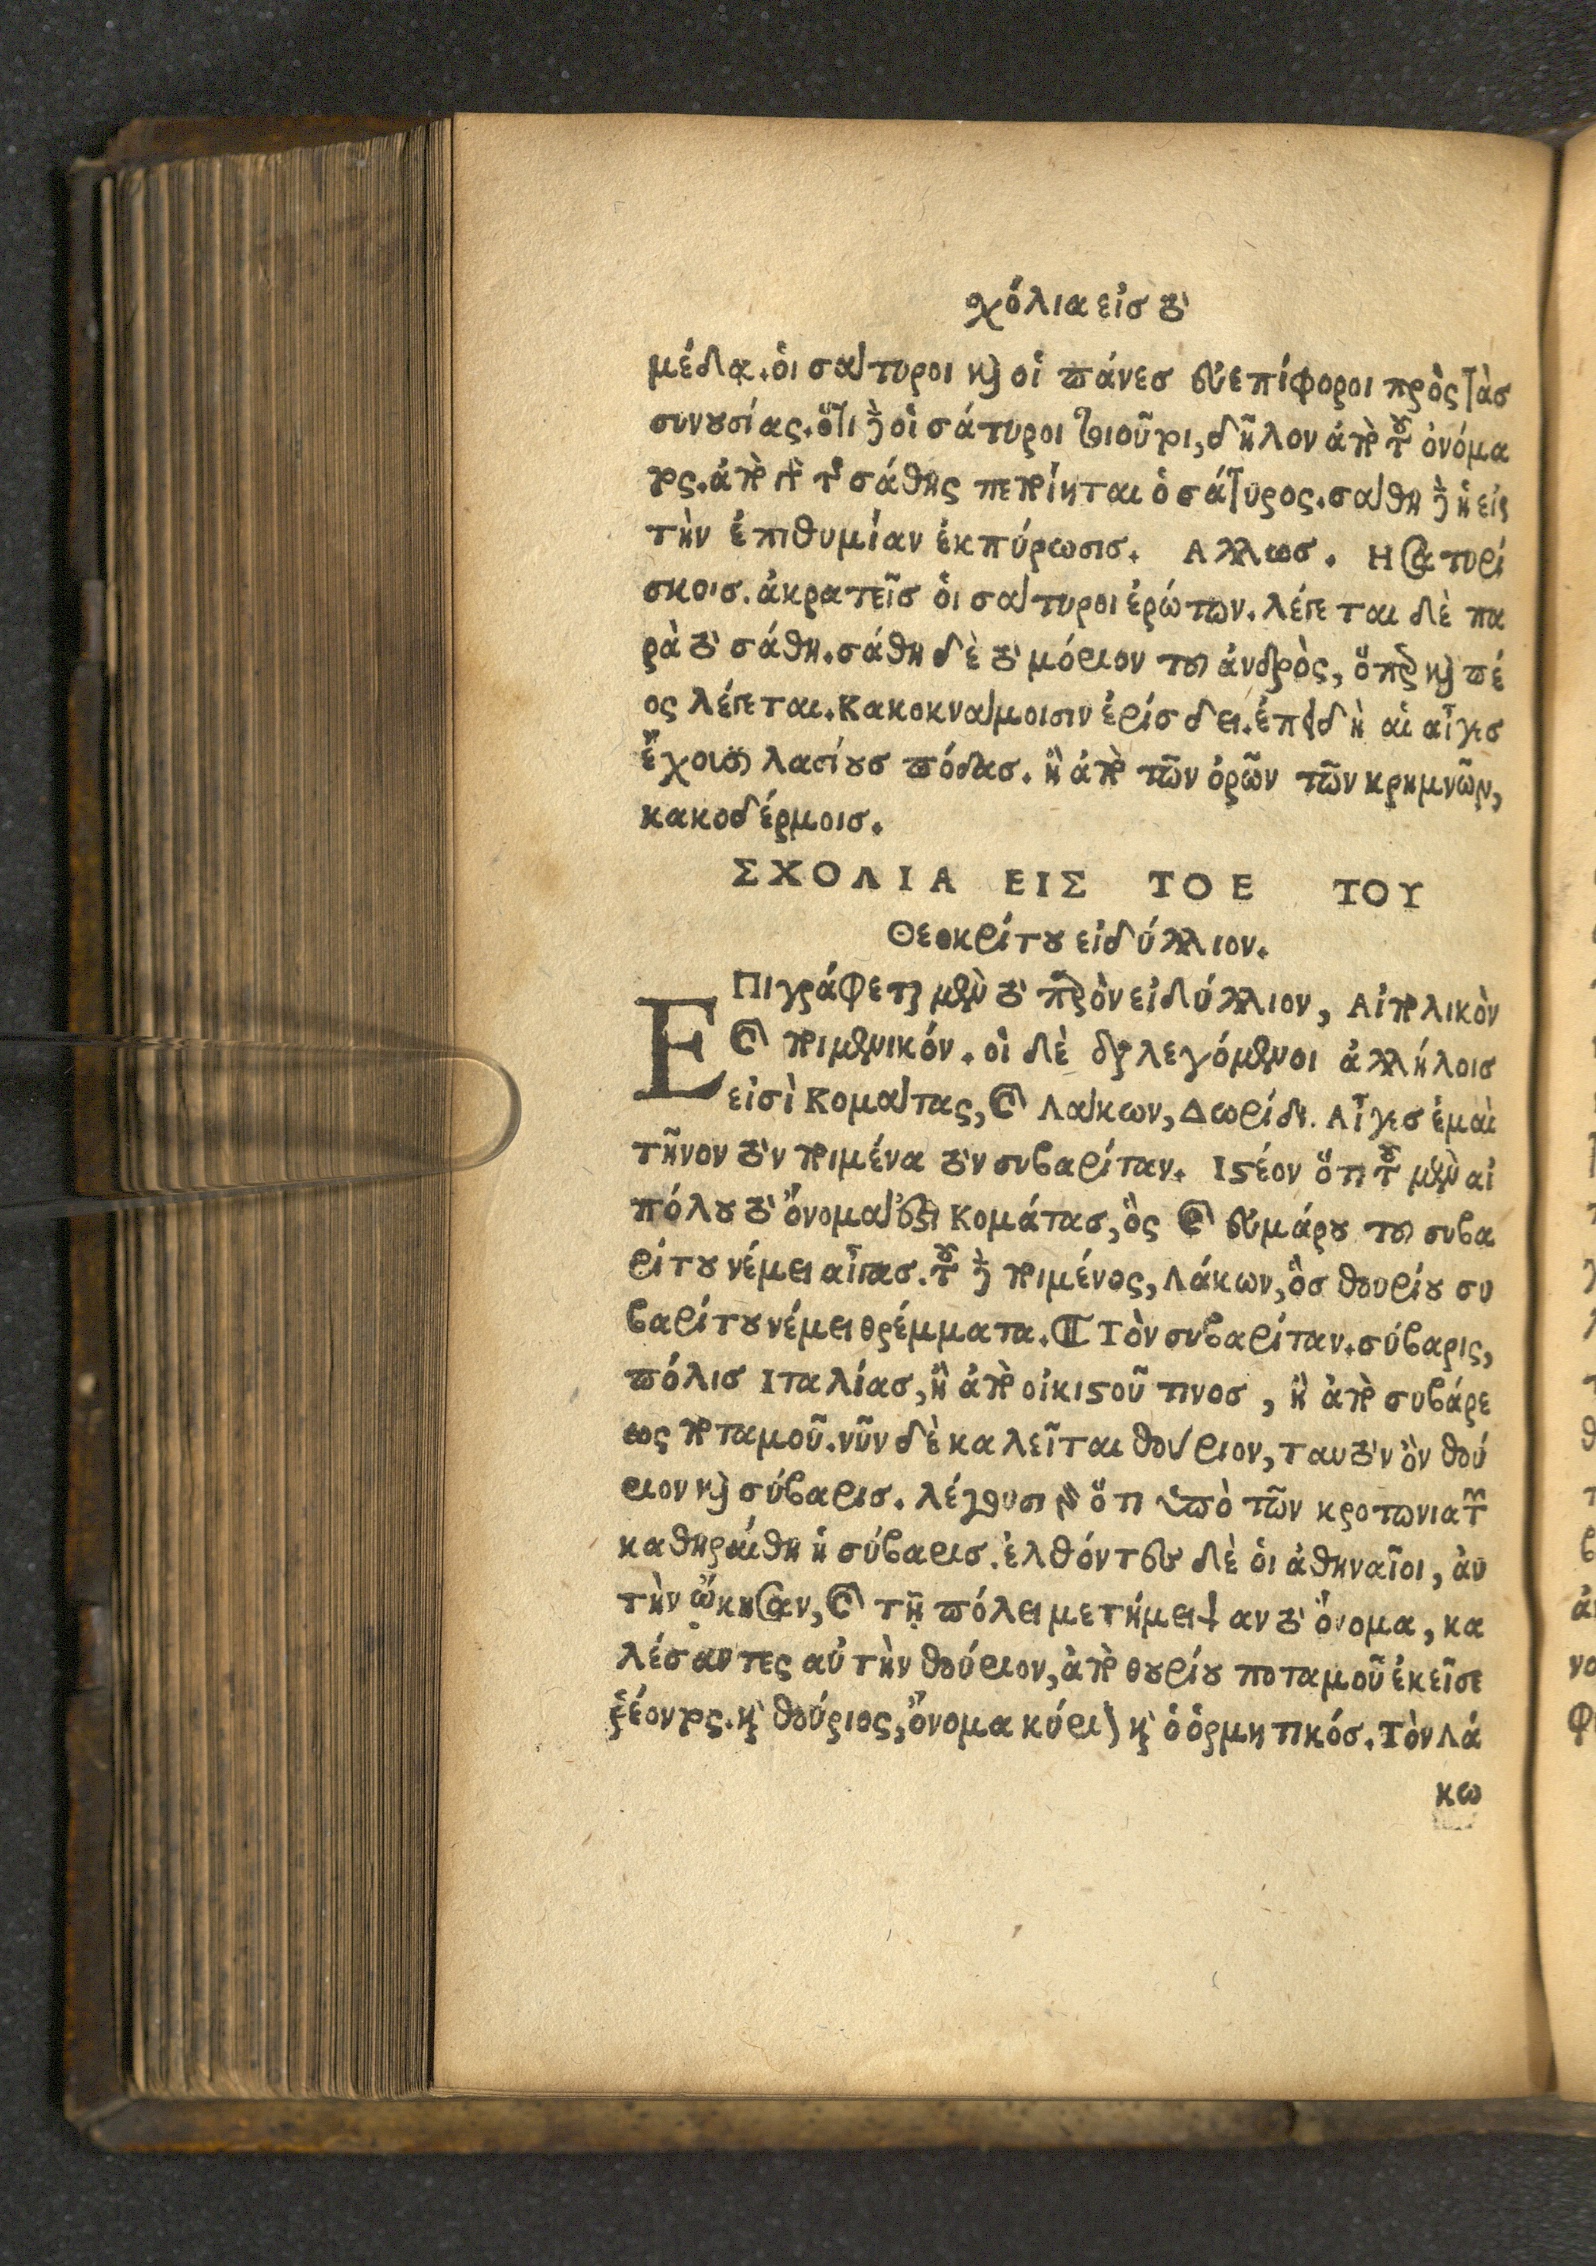 σχόλια εἰσ τὸ
μέδα. οἱ σάτυροι καὶ οἱ πάνεσ εὐεπίφοροι πρὸς τὰσ
συνουσίας. ὅτι δὲ οἱ σάτυροι τοιοῦτοι, δῆλον ἀπὸ τοῦ ὀνόμα
τος. ἀπὸ γὰρ τῆσ σάθης πεποίηται ὁ σάτυρος. σάθη δὲ ἡ εἰς
τὴν ἐπιθυμίαν ἐκπύρωσισ. Αλλωσ. Η σατυρί
σκοισ. ἀκρατεῖσ ὁι σάτυροι ἐρώτων. λέγεται δὲ πα
ρὰ τὸ σάθη. σάθη δὲ τὸ μόριον τοῦ ἀνδρὸς, ὅπερ καὶ πέ
ος λέγεται. Κακοκνάμοισιν ἐρίσδει. ἐπειδὴ αἱ αἶγεσ
ἔχουσι λασίουσ πόδασ. ἢ ἀπὸ τῶν ὀρῶν τῶν κρημνῶν,
κακοδέρμοισ.
ΣΧΟΛΙΑ ΕΙΣ ΤΟ Ε ΤΟΥ
Θεοκρίτου εἰδύλλιον.
ΕΠιγράφεται μὲν τὸ παρὸν εἰδύλλιον, Αἰπολικὸν
καὶ ποιμενικόν. οἱ δὲ διαλεγόμενοι ἀλλήλοισ
εἰσὶ Κομάτας, καὶ Λάκων, Δωρίδι. Αἶγεσ ἐμαὶ
τῆνον τὸν ποιμένα τὸν συβαρίταν. Ιστέον ὅτι τοῦ μὲν αἰ
πόλου τὸ ὄνομά ἐστι Κομάτασ, ὃς καὶ εὐμάρου τοῦ συβα
ρίτου νέμει αἶγασ. τοῦ δὲ ποιμένος, Λάκων, ὃσ θουρίου συ
βαρίτου νέμει θρέμματα. ¶ Τὸν συβαρίταν. σύβαρις,
πόλισ Ιταλίασ, ἢ ἀπὸ οἰκιστοῦ τινοσ, ἢ ἀπὸ συβάρε
ως ποταμοῦ. νῦν δὲ καλεῖται θούριον, ταυτὸν ὂν θού
ριον καὶ σύβαρισ. λέγουσι δὲ ὅτι ὑπὸ τῶν κροτωνιατῶν
καθηρέθη ἡ σύβαρισ. ἐλθόντεσ δὲ ὁι ἀθηναῖοι, ἀυ
τὴν ᾤκησαν, καὶ τῇ πόλει μετήμειψαν τὸ ὄνομα, κα
λέσαντες αὐτὴν θούριον, ἀπὸ θουρίου ποταμοῦ ἐκεῖσε
ῥέοντος. καὶ θούριος, ὄνομα κύριον καὶ ὁ ὁρμητικόσ. Τὸν Λά
κω